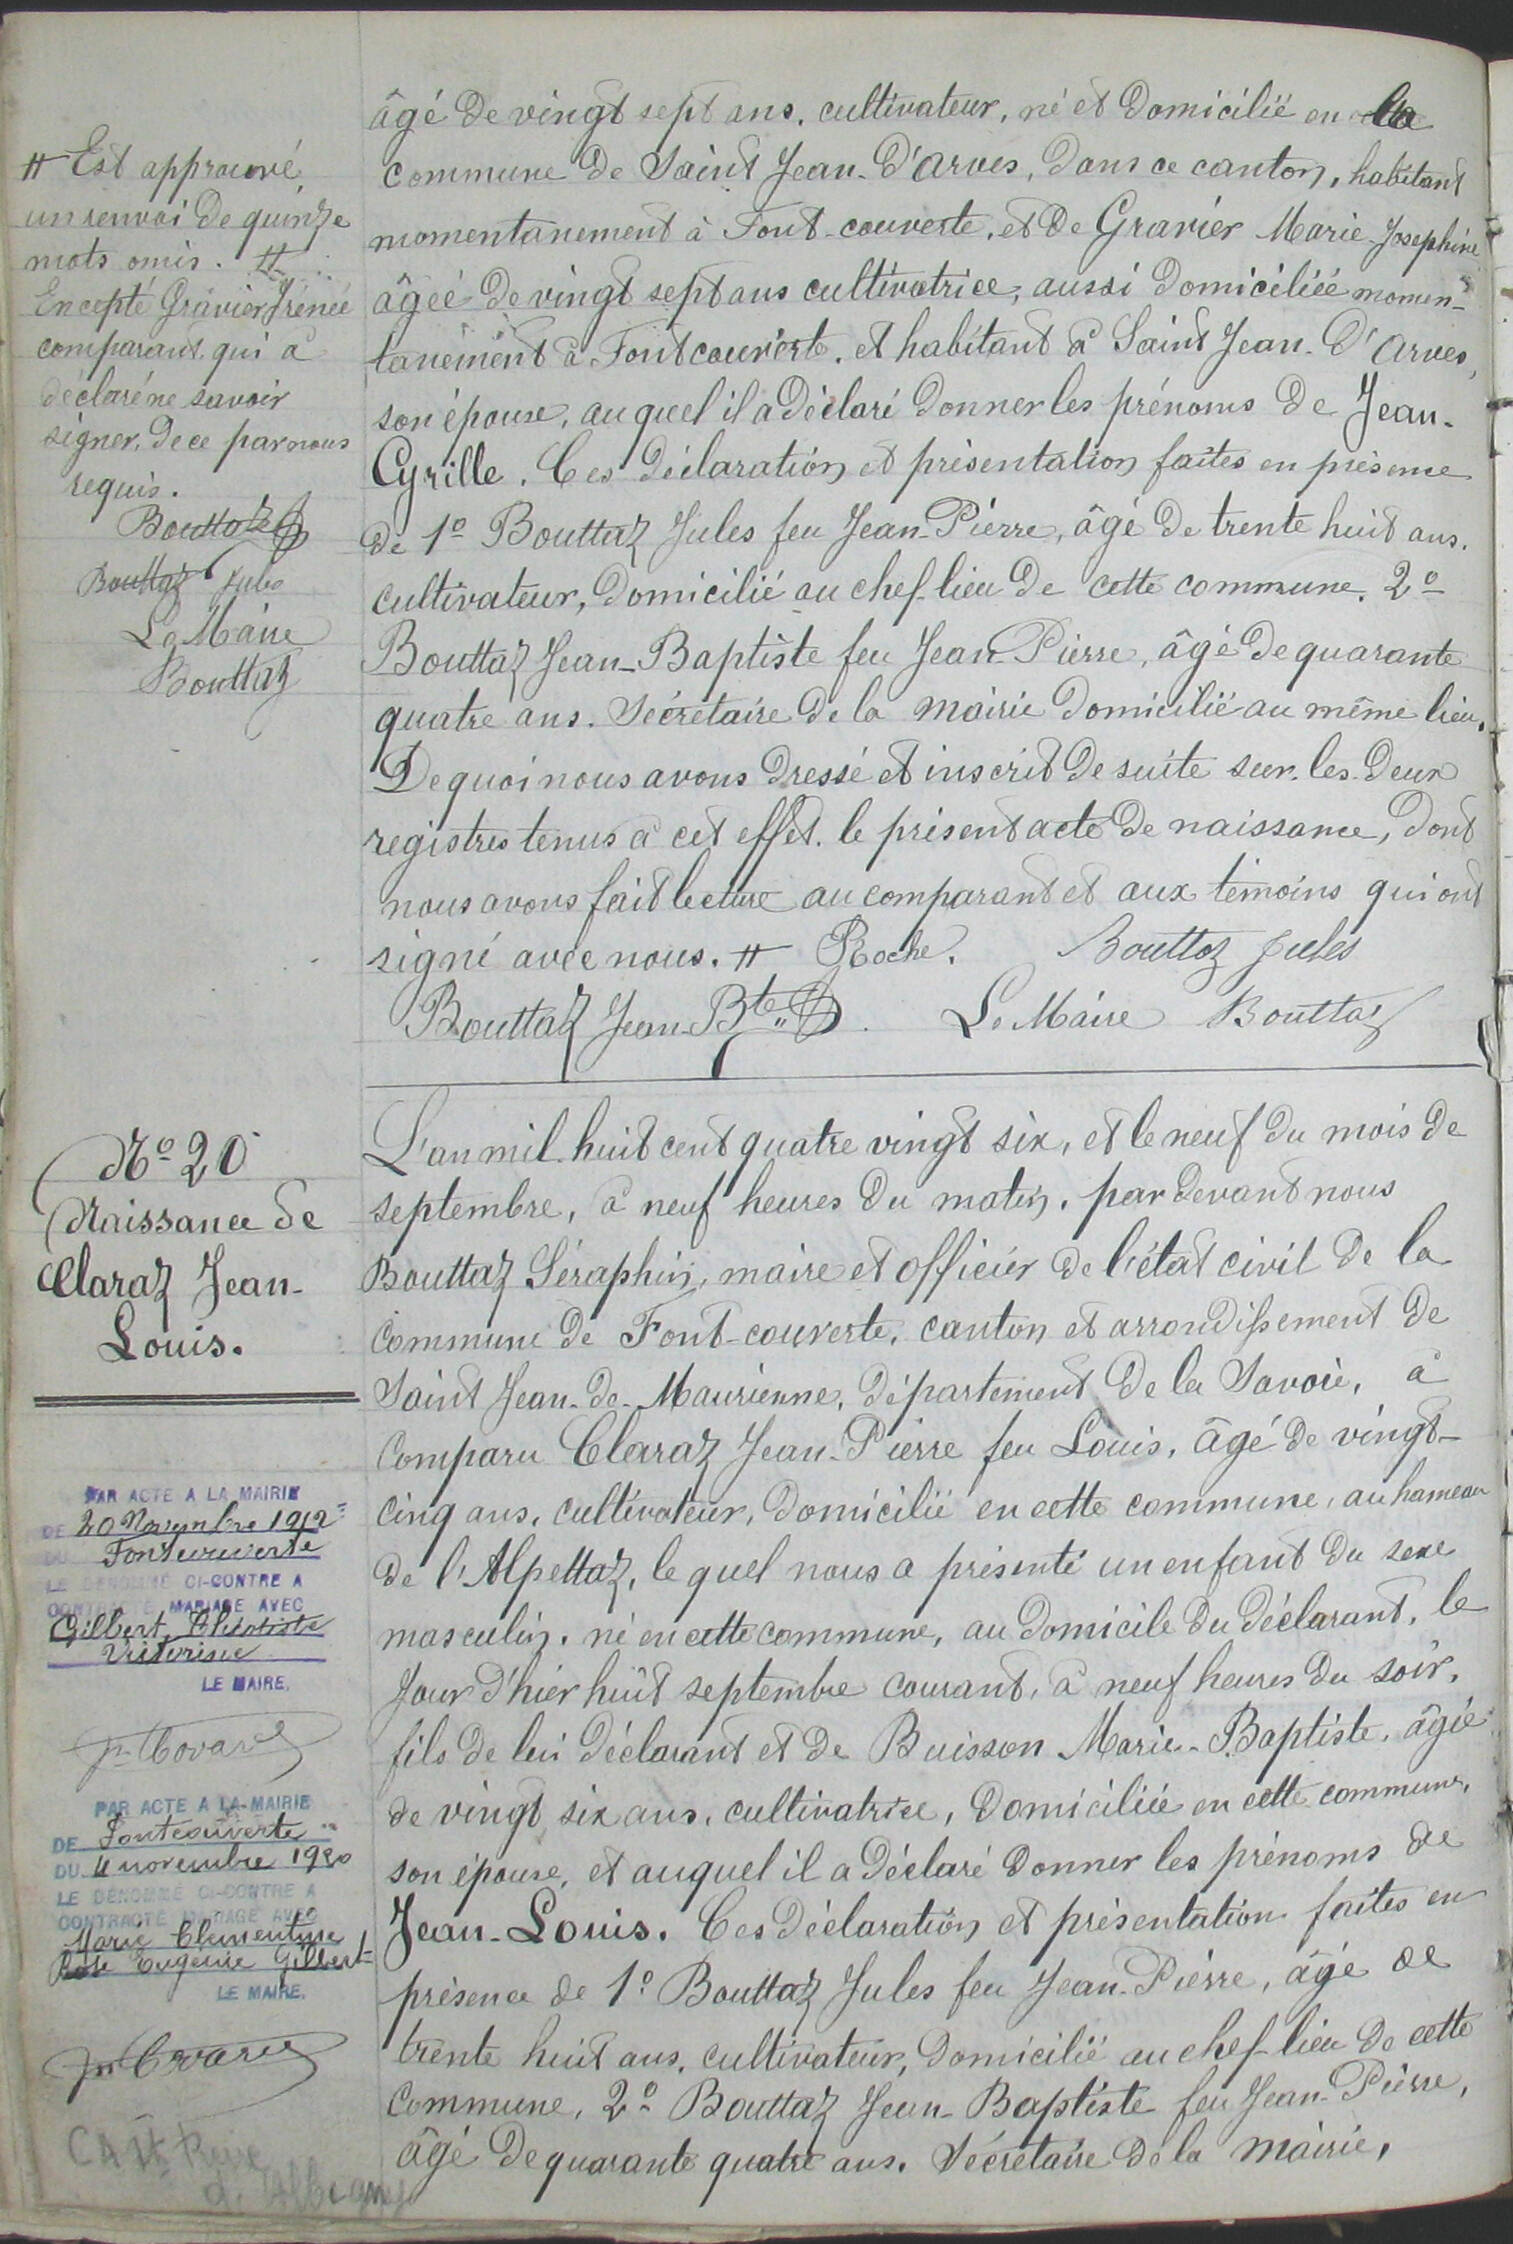 âgé de vingt sept ans, cultivateur, né et domicilié en la
commune de Saint Jean-d'Arves, dans ce canton, habitant
momentanement à Font-couverte, et de Gravier Marie-Josephine
âgéé de vingt sept ans cultivatrice, aussi domiciliéé momen-
tanément à Fontcouverte, et habitant à Saint Jean-d'Arves,
son épouse, auquel il a déclaré donner les prénoms de Jean-
Cyrille. Ces déclaration et présentation faites en présence
de 1º Bouttaz Jules feu Jean-Pierre, âgé de trente huit ans,
cultivateur, domicilié au chef-lieu de cette commune. 2º
Bouttaz Jean-Baptiste feu Jean-Pierre, âgé de quarante
quatre ans. Sécrétaire de la mairie domicilié au même lieu.
De quoi nous avons dressé et inscrit de suite sur les deux
registres tenus à cet effet, le présent acte de naissance, dont
nous avons fait lecture au comparant et aux témoins qui ont
signé avec nous. # Roche. Bouttaz Jules
Bouttaz Jean-Bte. Le Maire Bouttaz
# Est approuvé,
un renvoi de quinze
mots omis. #
Excepté Gravier Irénée
comparant qui a
déclaré ne savoir
signer, de ce par nous
requis.
Bouttaz
Bouttaz Jules
Le Maire
Bouttaz
Nº 20
Naissance de
Claraz Jean-
Louis.
L'an mil huit cent quatre vingt six, et le neuf du mois de
septembre, à neuf heures du matin, par devant nous
Bouttaz Séraphin, maire et officier de l'état civil de la
commune de Font-couverte, canton et arrondissement de
Saint Jean-de-Maurienne, département de la Savoie, a
comparu Claraz Jean-Pierre feu Louis, âgé de vingt-
cinq ans, cultivateur, domicilié en cette commune, au hameau
de l'Alpettaz, le quel nous a présenté un enfant du sexe
masculin, né en cette commune, au domicile du déclarant, le
jour d'hier huit septembre courant, à neuf heures du soir,
fils de lui déclarant et de Buisson Marie-Baptiste, âgée
de vingt six ans, cultivatrice, domiciliée en cette commune,
son épouse, et auquel il a déclaré donner les prénoms de
Jean-Louis. Ces déclaration et présentation faites en
présence de 1º Bouttaz Jules feu Jean-Pierre, âgé de
trente huit ans, cultivateur, domicilié au chef-lieu de cette
commune, 2º Bouttaz Jean-Baptiste feu Jean-Pierre,
âgé de quarante quatre ans. Sécrétaire de la mairie,
PAR ACTE A LA MAIRIE
DE 20 Novembre 1912
DU Fontcouverte
LE DÉNOMMÉ CI-CONTRE A
CONTRACTÉ MARIAGE AVEC
Gilbert
LE MAIRE,
PAR ACTE A LA MAIRIE
DE Fontcouverte
DU 4 novembre 1920
LE DÉNOMMÉ CI-CONTRE A
CONTRACTÉ MARIAGE AVEC
Marie Clementine
Rose Eugénie Gilbert
LE MAIRE,